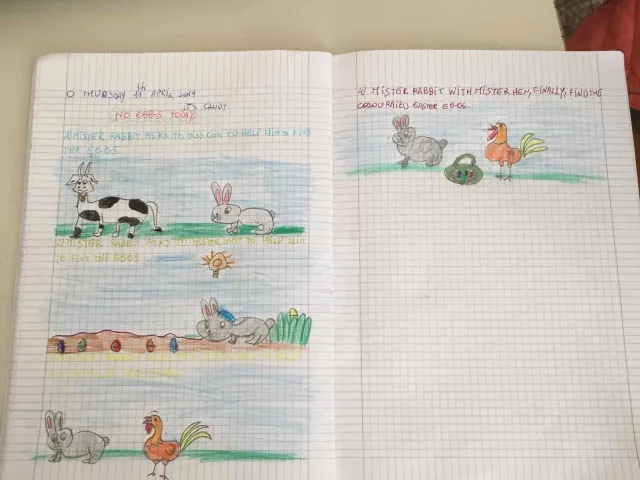 THURSDAY 11th APRIL 2019
IT'S CANDY
NO EGGS TODAY
1) MISTER RABBIT ASKS TO MISS COW TO HELP HIM TO FIND
THE EGGS
2) MISTER RABBIT ASKS TO MISTER LAMP TO HELP HIM
TO FIND THE EGGS
4) MISTER RABBIT WITH MISTER HEN, FINALLY, FIND THE
COLOURAIZED EASTER EGGS